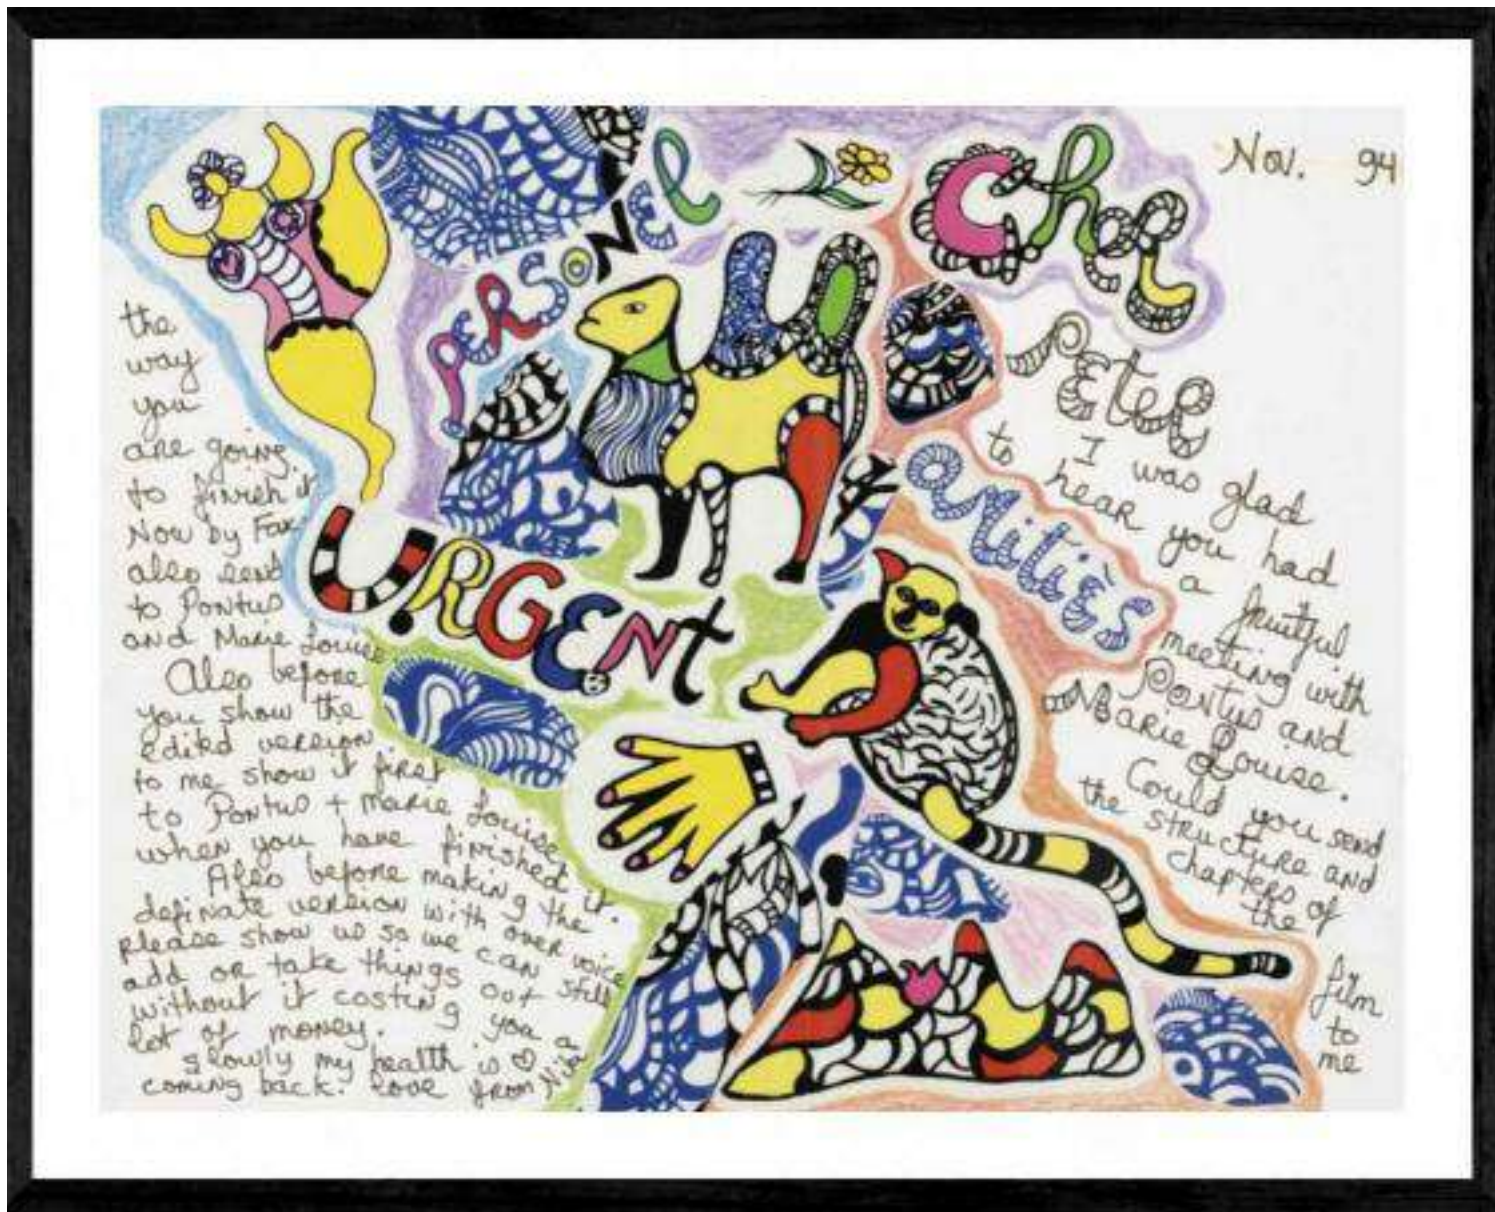 Nov. 94
PERSONEL
Cher
PETER
I was glad
to hear you had
a fruitful
meeting with
Pontus and
Marie Louise.
Could you send
the structure and
chapters of
the
film
to
me
the
way
you
are going
to finish it
Now by Fax
also send
to Pontus
and Marie Louise
Also before
you show the
edited version
to me show it first
to Pontus + Marie Louise
when you have finished it.
Also before making the
definate version with over voice
please show us so we can still
add or take things out
without it costing you a
lot of money.
slowly my health is ♡
coming back. Love from Niki
amitiès
URGENT